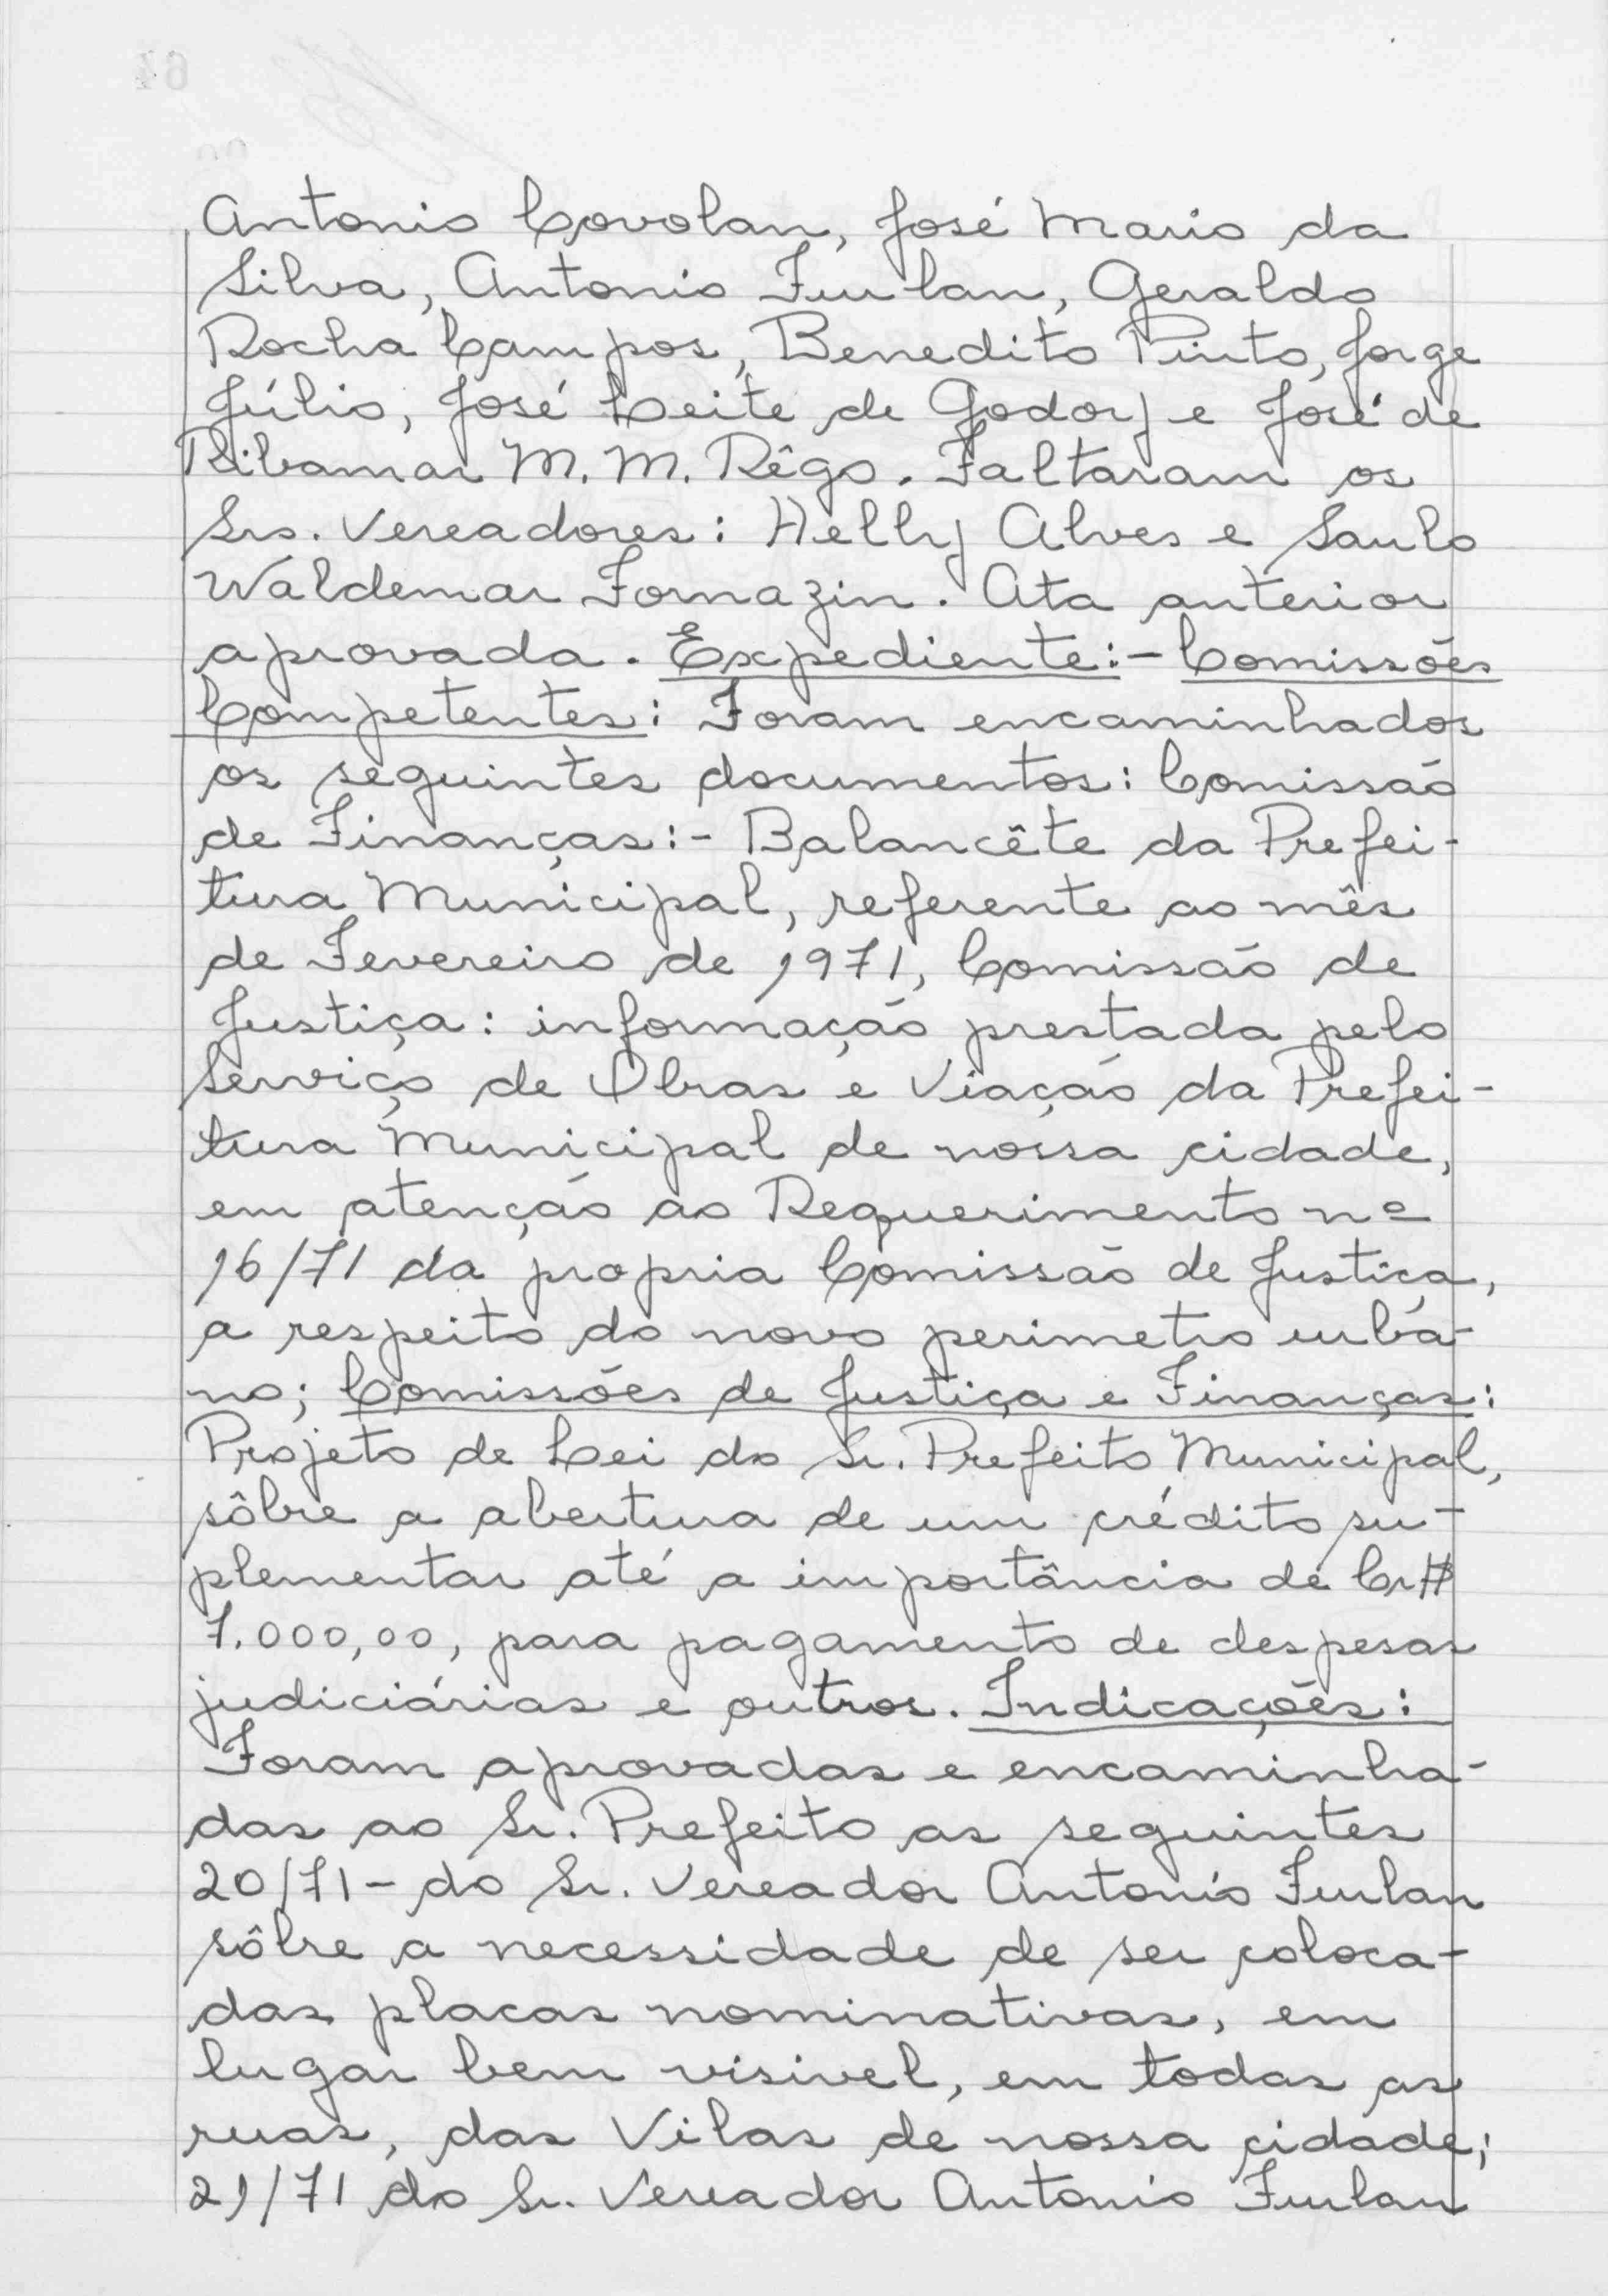 Antonio Covolan, José Mario da
Silva, Antonio Furlan, Geraldo
Rocha Campos, Benedito Pinto, Jorge
Júlio, José Leite de Godoy e José de
Ribamar M. M. Rêgo. Faltaram os
Srs. Vereadores: Helly Alves e Saulo
Waldemar Fornazin. Ata anterior
aprovada. Expediente:- Comissões
Competentes: Foram encaminhados
os seguintes documentos: Comissão
de Finanças:- Balancête da Prefei-
tura Municipal, referente ao mês
de Fevereiro de 1971, Comissão de
Justiça: informação prestada pelo
Serviço de Obras e Viação da Prefei-
tura Municipal de nossa cidade,
em atenção ao Requerimento nº
16/71 da propria Comissão de Justiça,
a respeito do novo perimetro urba-
no; Comissões de Justiça e Finanças:
Projeto de Lei do Sr. Prefeito Municipal,
sôbre a abertura de um crédito su-
plementar até a importância de Cr$
7.000,00, para pagamento de despesas
judiciárias e outros. Indicações:
Foram aprovadas e encaminha-
das ao Sr. Prefeito as seguintes
20/71- do Sr. Vereador Antonio Furlan
sôbre a necessidade de ser coloca-
das placas nominativas, em
lugar bem visivel, em todas as
ruas, das Vilas de nossa cidade;
21/71 do Sr. Vereador Antonio Furlan